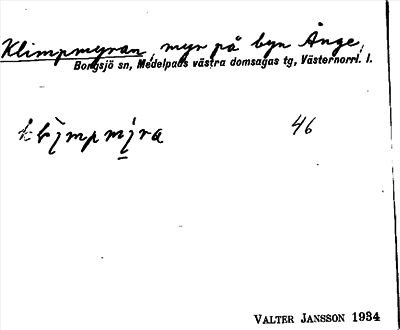 Klimpmyran, myr på byn Ånge,
Borgsjö sn, Medelpads västra domsagas tg, Västernorrl. l.
klìmpmíra 46
VALTER JANSSON 1934